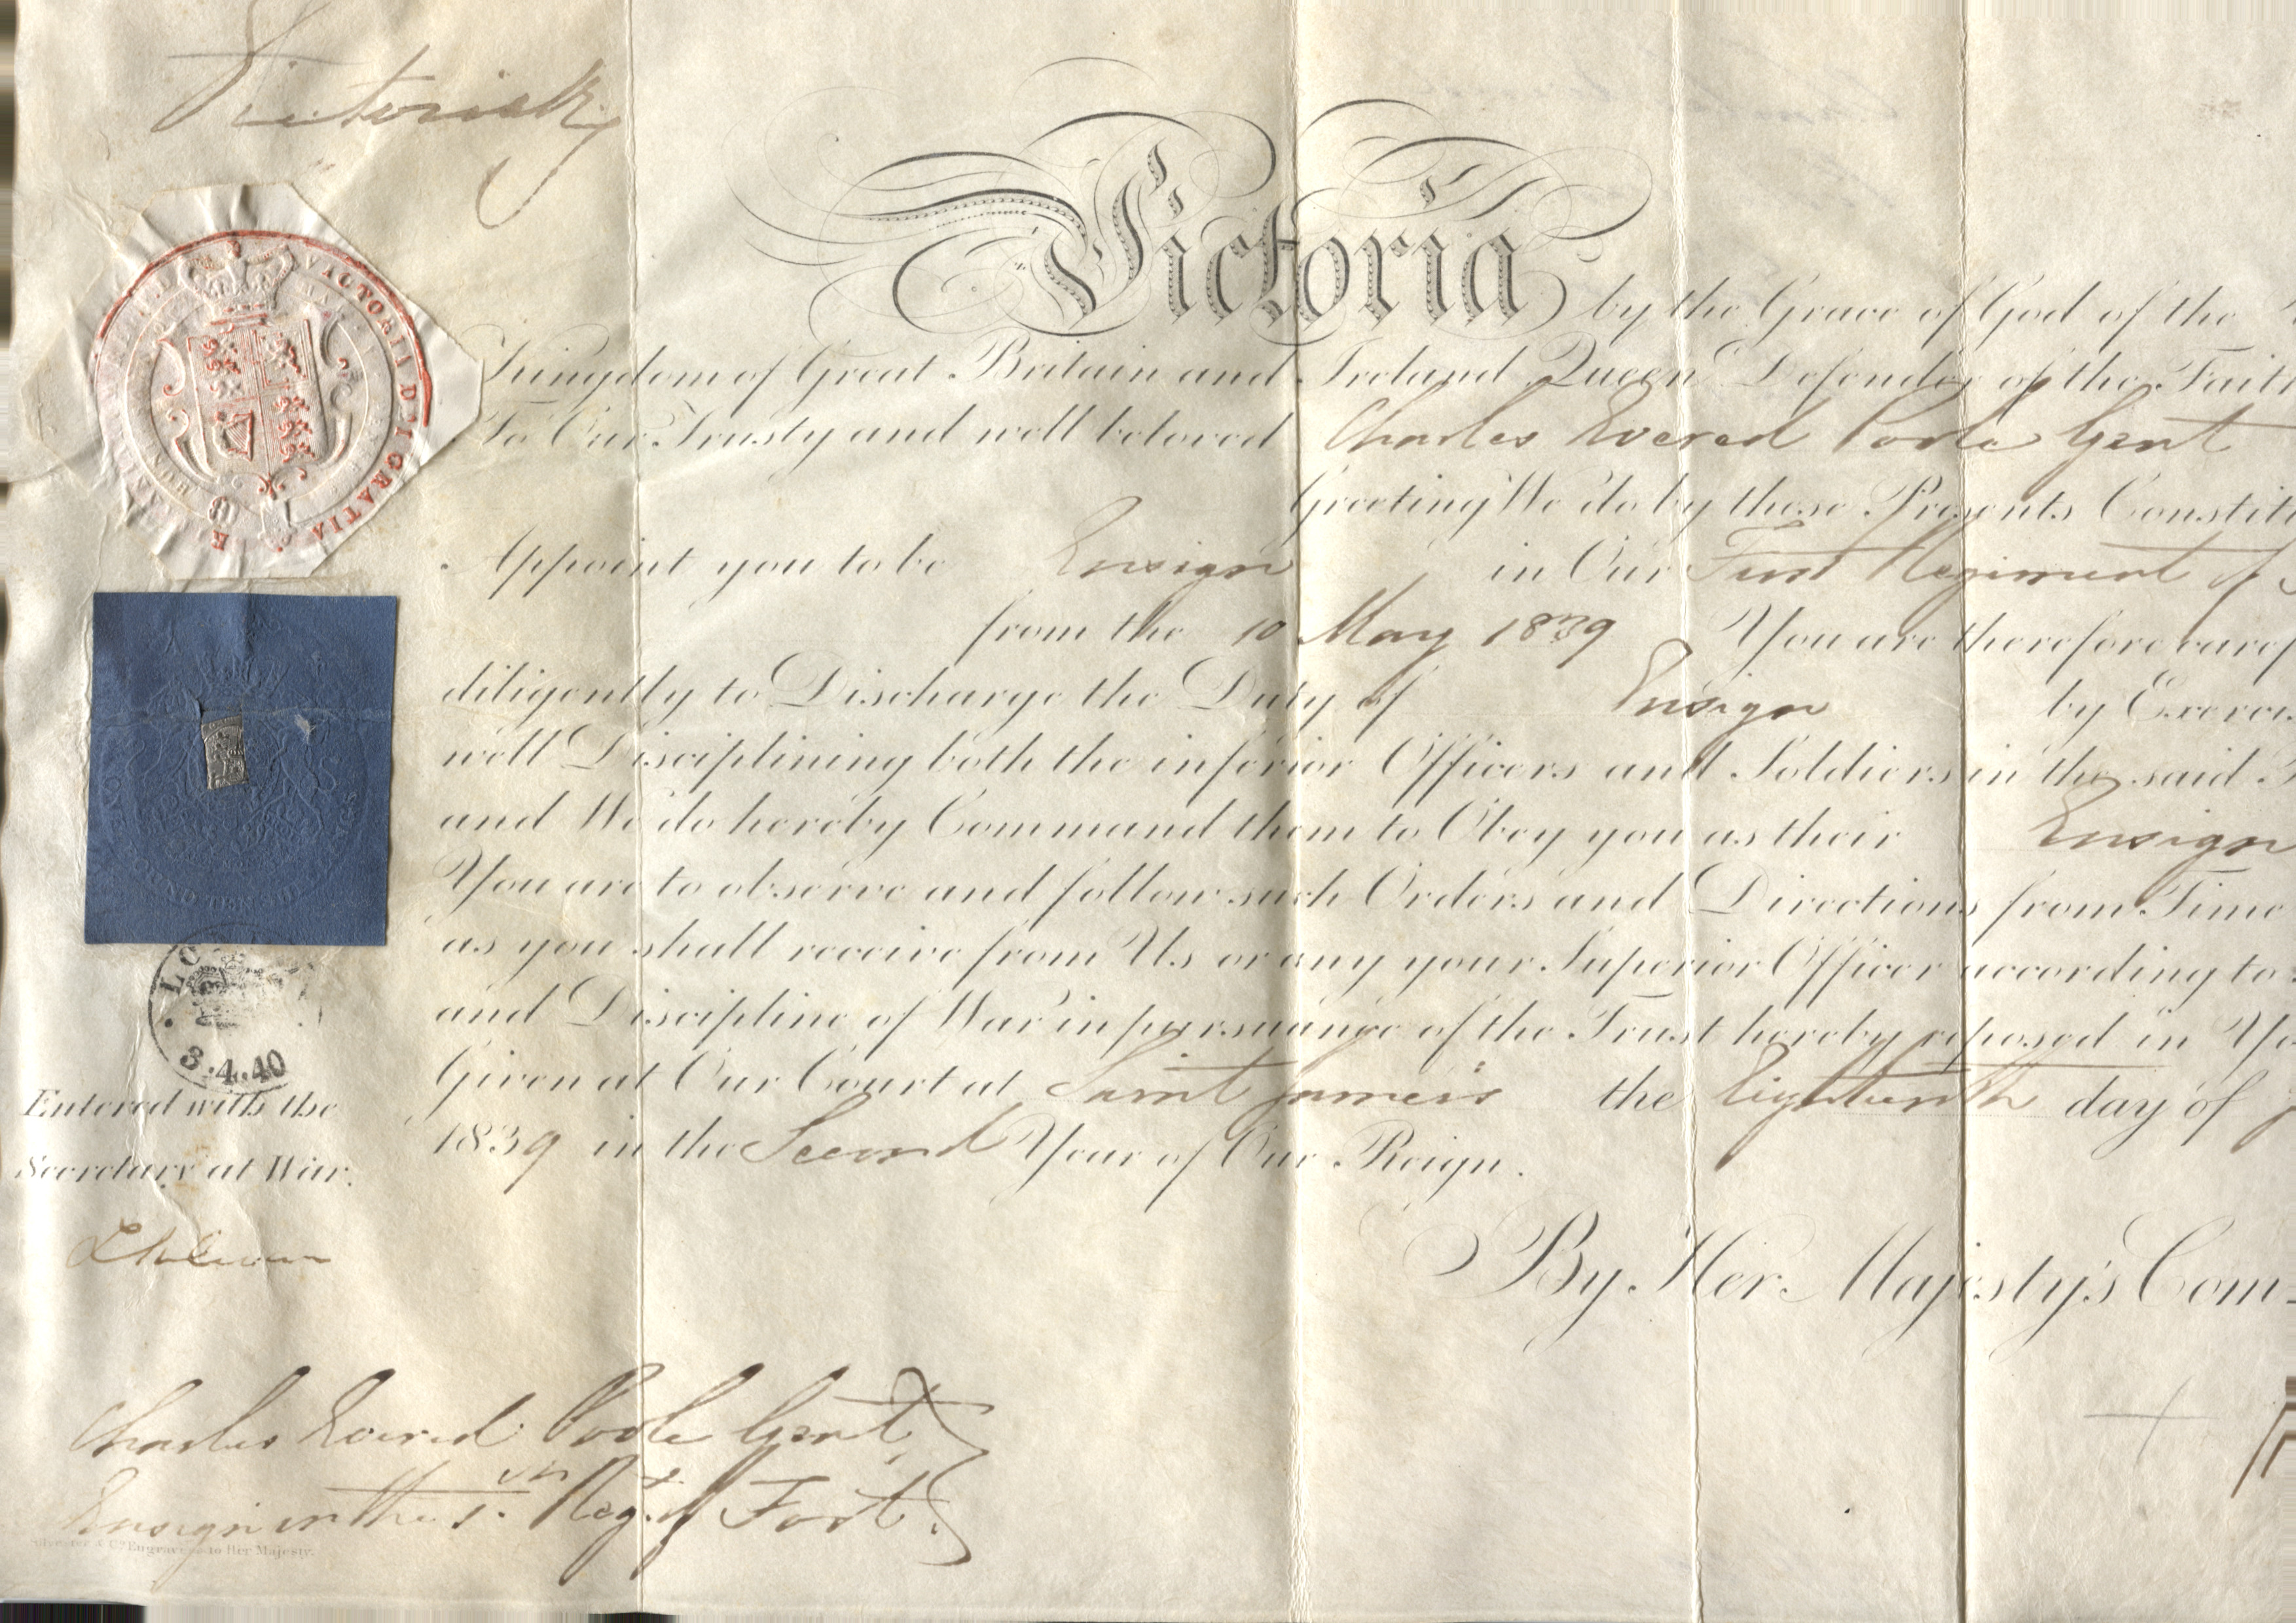 Victoria R
Victoria by the Grace of God of the
Kingdom of Great Britain and Ireland Queen Defender of the Fait
To Our Trusty and well beloved Charles Evered Poole Gent
Greeting We do by these Presents Constit
Appoint you to be Ensign in Our First Regiment of
from the 10 May 1839 You are therefore caref
diligently to Discharge the Duty of Ensign by Exerci
well Disciplining both the inferior Officers and Soldiers in the said
and We do hereby Command them to Obey you as their Ensign
You are to observe and follow such Orders and Directions from Time
as you shall receive from Us or any your Superior Officer according to
and Discipline of War in pursuance of the Trust hereby reposed in Yo
Given at Our Court at Saint James's the Eighteenth day of
1839 in the Second Year of Our Reign.
By Her Majesty's Com
VICTORIA D. GRATIA
3.4.40
Entered with the
Secretary at War.
Charles Evered Poole Gent
Ensign in the 1st Regt of Foot.
Engravers to Her Majesty.